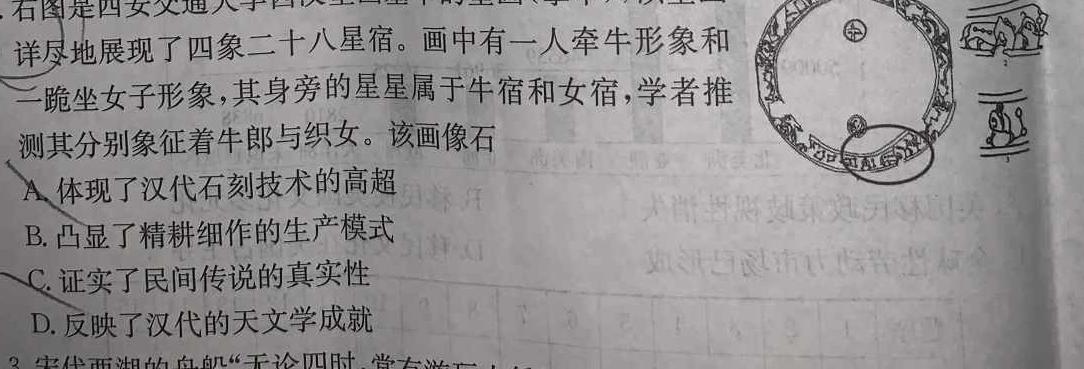 右图是西安交通大学西汉
详尽地展现了四象二十八星宿。画中有一人牵牛形象和
一跪坐女子形象,其身旁的星星属于牛宿和女宿,学者推
测其分别象征着牛郎与织女。该画像石
A. 体现了汉代石刻技术的高超
B. 凸显了精耕细作的生产模式
C. 证实了民间传说的真实性
D. 反映了汉代的天文学成就
3. 宋代西湖的舟船“无论四时,常有游玩